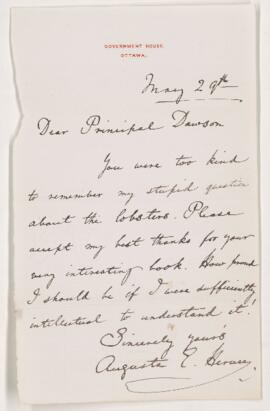 GOVERNMENT HOUSE,
OTTAWA.
May 29th
Dear Principal Dawson
You were too kind
to remember my stupid question
about the lobsters. Please
accept my best thanks for your
very interesting book. How proud
I should be if I were sufficiently
intellectual to understand it!
Sincerely yours
Augusta E.